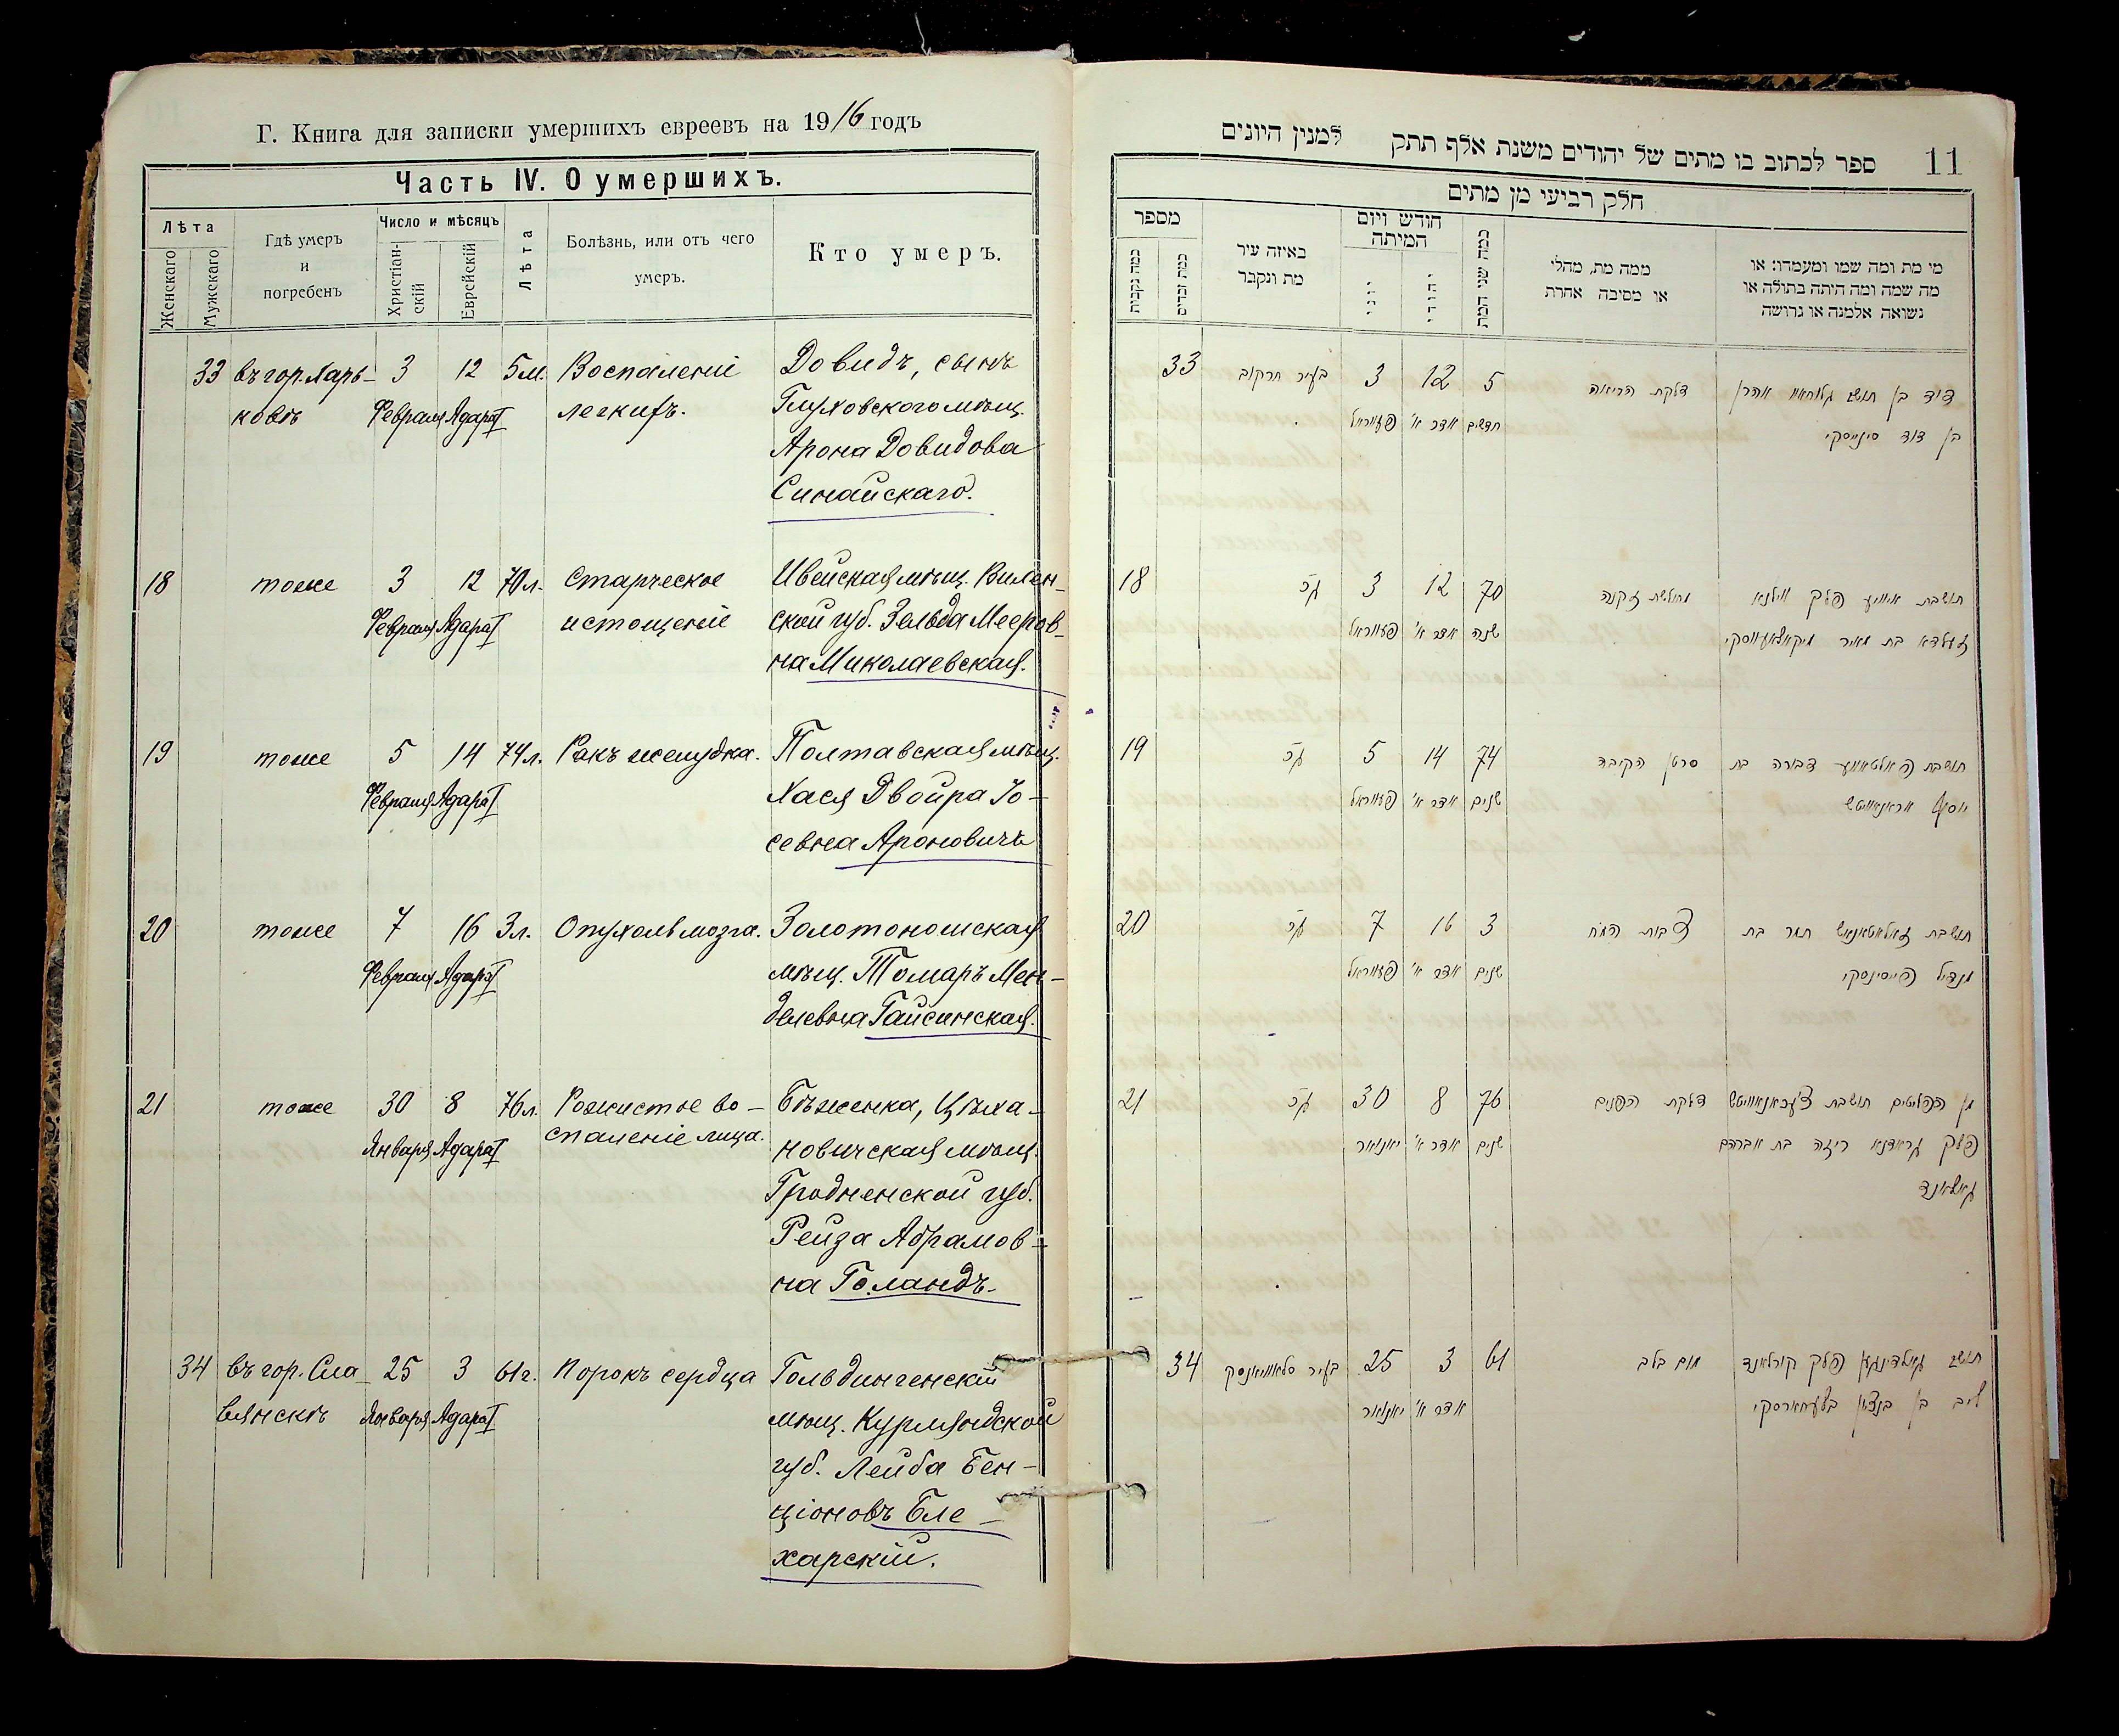 Г. Книга для записки умершихъ евреевъ на 1916 годъ
Часть IV. О умершихъ.
Лѣта
Женскаго
Мужскаго
Гдѣ умеръ
и
погребенъ
Число и мѣсяцъ
Христіан-
скій
Еврейскій
Лѣта
Болѣзнь, или отъ чего
умеръ.
Кто умеръ.
33 въ гор. Харь- 3 12 5 м. Воспаленіе Довидъ, сынъ
ковѣ Февраля Адара I легкихъ. Глуховского мѣщ.
Арона Довидова
Синайскаго.
18 тоже 3 12 70 л. Старческое Ивейская мѣщ. Вилен-
Февраля Адара I истощеніе ской губ. Зельда Мееров-
на Миколаевская.
19 тоже 5 14 74 л. Ракъ желудка. Полтавская мѣщ.
Февраля Адара I Хася Двойра Іо-
севна Ароновичъ
20 тоже 7 16 3 л. Опухоль мозга. Золотоношская
Февраля Адара I мѣщ. Томаръ Мен-
делевна Гайсинская.
21 тоже 30 8 76 л. Рожистое во- Бѣженка, Цѣха-
Января Адара I спаленіе лица. новичская мѣщ.
Гродненской губ.
Рейза Абрамов-
на Голандъ.
34 въ гор. Сла- 25 3 61 г. Порокъ сердца Гольдингенскій
вянскѣ Января Адара I мѣщ. Курляндской
губ. Лейба Бен-
ціоновъ Бле-
харскій.
11
ספר לכתוב בו מתים של יהודים משנת אלף תתק למנין היונים
חלק רביעי מן מתים
מספר
כמה נקבות
כמה זכרים
באיזה עיר
מת ונקבר
חודש ויום
המיתה
יוני
יהודי
כמה שני המת
ממה מת, מחלי
או מסיבה אחרת
מי מת ומה שמו ומעמדו: או
מה שמה ומה היתה בתולה או
נשואה אלמנה או גרושה
33 בעיר חרקוב 3 12 5 דלקת הריאה דוד בן תושב גלוחאוו אהרן
פעווראל אדר א' חדשים בן דוד סינייסקי
18 3 12 70 חולשת זקנה תושבת איוויע פלך ווילנא
פעווראל אדר א' שנה זעלדא בת מאיר מיקאלאעווסקי
19 5 14 74 סרטן הקיבה תושבת פאלטאווע דבורה בת
פעווראל אדר א' שנים יוסף אראנאוויטש
20 7 16 3 המוח תושבת זאלאטאנאש תמר בת
פעווראל אדר א' שנים מנדיל
21 30 8 76 דלקת הפנים מן הפליטים תושבת
יאנואר אדר א' שנים פלך גראדנא ריזה בת אברהם
גאלאנד
34 בעיר סלאוויאנסק 25 3 61 מום בלב תושב גאלדינגען פלך קורלאנד
יאנואר אדר א' ליב בן בנציון בלעחארסקי